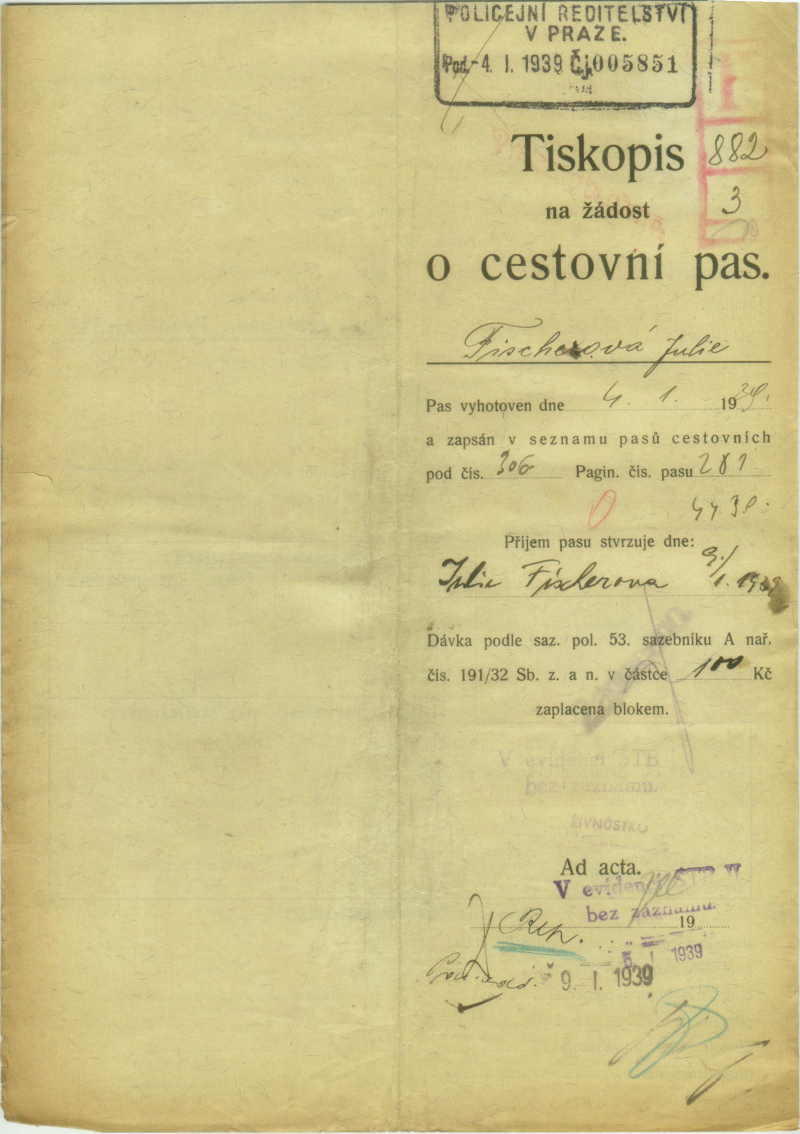 POLICEJNÍ ŘEDITELSTVÍ
V PRAZE.
Pod. -4. I. 1939 Čj. 005851
Tiskopis
882
na žádost
3
o cestovní pas.
Fischerová Julie
Pas vyhotoven dne 4. 1. 1939.
a zapsán v seznamu pasů cestovních
pod čís. 306 Pagin. čís. pasu 281
Příjem pasu stvrzuje dne:
Julie Fischerova 9./1. 1939
Dávka podle saz. pol. 53. sazebníku A nař.
čís. 191/32 Sb. z. a n. v částce 100 Kč
zaplacena blokem.
V evidenci STB
bez záznamu.
ŽIVNOSTKU
Ad acta.
V eviden
bez záznamu.
19
Rep.
5. I 1939
9. I. 1939